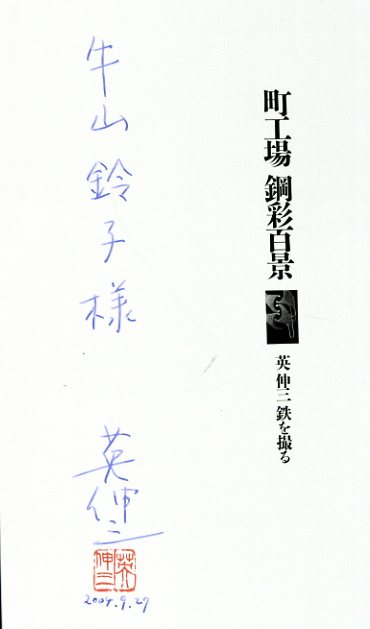 町工場 鋼彩百景
英伸三 鉄を撮る
牛山鈴子様
英伸三
英伸三
2004.9.27